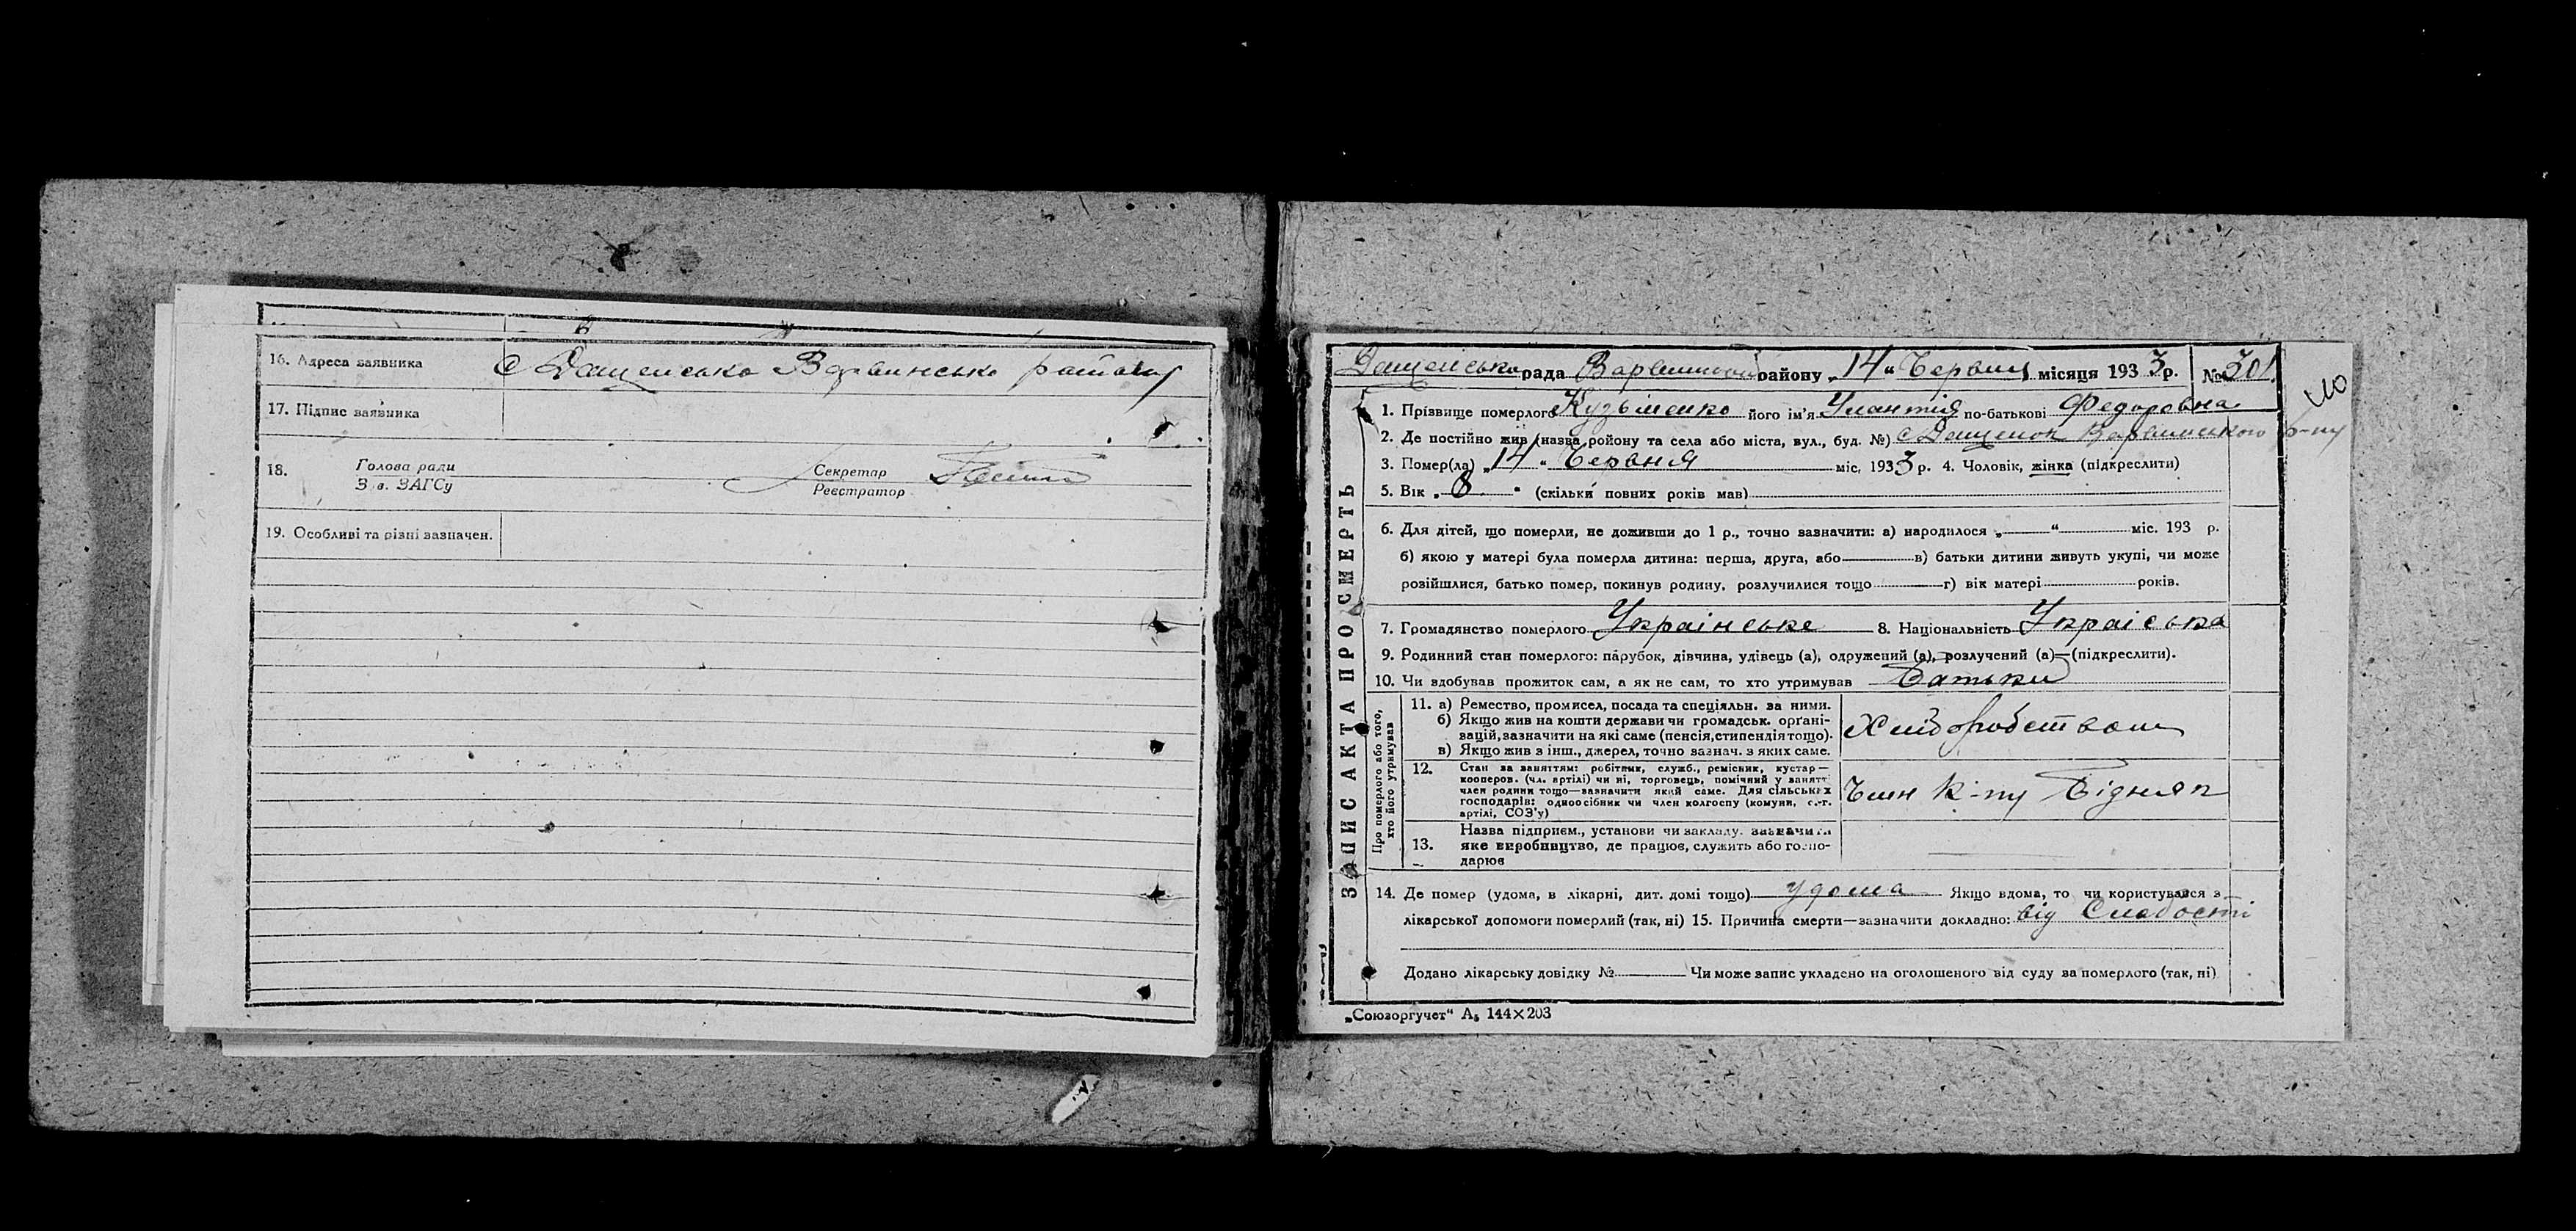 16. Адреса заявника С Дащенська Варвинсько району
17. Підпис заявника
18. Голова ради
Зав. ЗАГСу
Секретар
Реєстратор
19. Особливі та різні зазначен.
Дащенська рада Варвинський району „14“ Червня місяця 1933 р. № 301
110
ЗАПИС АКТА ПРО СМЕРТЬ
1. Прізвище померлого Кузьменко його ім'я по-батькові Федоровна
2. Де постійно жив (назва ройону та села або міста, вул., буд. №) с Дащенки Варвинського р-ну
3. Помер(ла) „14“ Червня міс. 1933 р. 4. Чоловік, жінка (підкреслити)
5. Вік „8“ (скільки повних років мав)
6. Для дітей, що померли, не доживши до 1 р., точно зазначити: а) народилося „ “ міс. 193 р.
б) якою у матері була померла дитина: перша, друга, або в) батьки дитини живуть укупі, чи може
розійшлися, батько помер, покинув родину, розлучилися тощо г) вік матері років.
7. Громадянство померлого Українське 8. Національність Украіська
9. Родинний стан померлого: парубок, дівчина, удівець (а), одружений (а), розлучений (а)—(підкреслити).
10. Чи здобував прожиток сам, а як не сам, то хто утримував Батьки
Про померлого або того, хто його утримував
11. а) Ремество, промисел, посада та спеціяльн. за ними.
б) Якщо жив на кошти держави чи громадськ. орґані-
зацій, зазначити на які саме (пенсія, стипендія тощо).
в) Якщо жив з інш., джерел, точно зазнач. з яких саме.
Хліборобством
12. Стан за заняттям: робітник, служб., ремісник, кустар—
кооперов. (чл. артілі) чи ні, торговець, помічний у занятт
член родини тощо—зазначити який саме. Для сільських
господарів: одноосібник чи член колгоспу (комуни, с.-г.
артілі, СОЗ'у)
Член к-пу Бідняк
13. Назва підприєм., установи чи закладу. зазначити
яке виробництво, де працює, служить або госпо-
дарює
14. Де помер (удома, в лікарні, дит. домі тощо) удома Якщо вдома, то чи користувався з
лікарської допомоги померлий (так, ні) 15. Причина смерти—зазначити докладно: від Слабости
Додано лікарську довідку № Чи може запис укладено на оголошеного від суду за померлого (так, ні)
„Союзоргучет“ А₅ 144×203